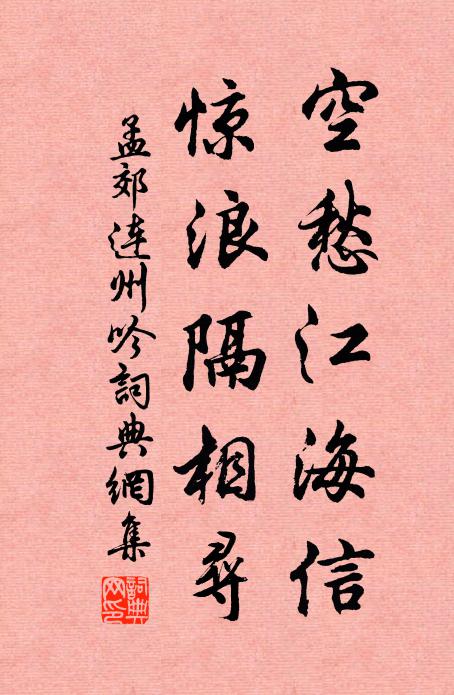 空愁江海信
惊浪隔相寻
孟郊连州吟詞典網集
詞典网印